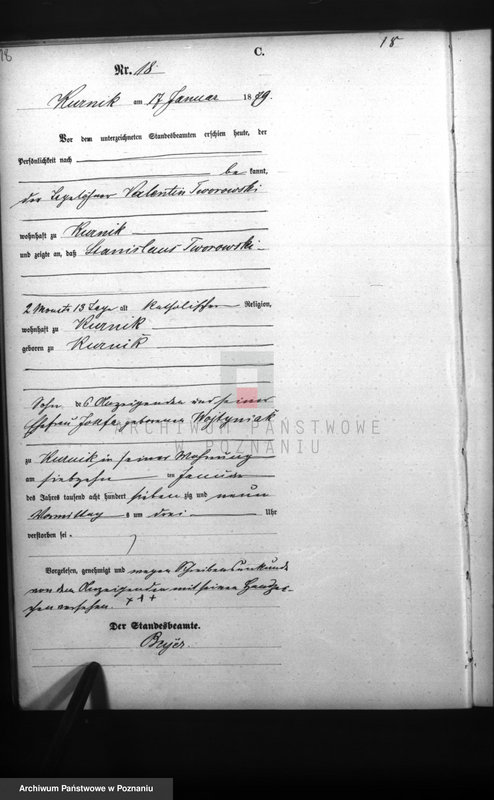 18
C.
18
Nr. 18.
Kurnik am 17 Januar 1879.
Vor dem unterzeichneten Standesbeamten erschien heute, der
Persönlichkeit nach
be kannt,
der Tagelöhner Valentin Tworowski
wohnhaft zu Kurnik
und zeigte an, daß Stanislaus Tworowski
2 Monate 13 Tage alt katholischer Religion,
wohnhaft zu Kurnik
geboren zu Kurnik
Sohn des Anzeigenden und seiner
Ehefrau Josefa geborenen Wojtyniak
ARCHIWUM PAŃSTWOWE
W POZNANIU
zu Kurnik in seiner Wohnung
am siebzehn ten Januar
des Jahres tausend acht hundert sieben zig und neun
Vormittag s um drei Uhr
verstorben sei.
Vorgelesen, genehmigt und wegen Schreibensunkunde
von dem Anzeigenden mit seinen Handzei-
chen versehen. +++
Der Standesbeamte.
Beyer.
Archiwum Państwowe w Poznaniu